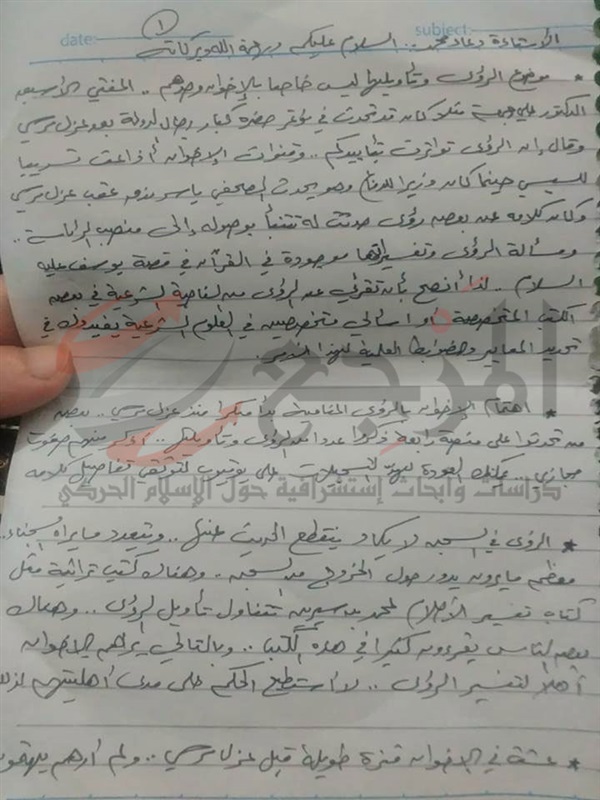 date:
subject:
١
الأستاذة دعاء محمد.. السلام عليكم ورحمة الله وبركاته
* موضوع الرؤى وتأويلها ليس خاصا بالإخوان وحدهم.. المفتي الأسبق
الدكتور علي جمعة مثلا كان قد تحدث في مؤتمر حضره كبار رجال الدولة بعد عزل مرسي
وقال إن الرؤى تواترت بتأييدكم.. وقنوات الإخوان أذاعت تسريبا
للسيسي حينما كان وزيرا للدفاع وهو يحدث الصحفي ياسر رزق عقب عزل مرسي
وكان كلامه عن بعض رؤى حدثت له تتنبأ بوصوله إلى منصب الرئاسة..
ومسألة الرؤى وتفسيراتها موجودة في القرآن في قصة يوسف عليه
السلام.. لذا أنصح بأن تقرئي عن الرؤى من الناحية الشرعية في بعض
الكتب المتخصصة أو اسألي متخصصين في العلوم الشرعية يفيدونك في
تحديد المعايير والضوابط العلمية لهذا
* اهتمام الإخوان بالرؤى المنامية بدأ مبكرا منذ عزل مرسي.. بعض
من تحدثوا على منصة رابعة ذكروا عددا من الرؤى وتأويلها.. أذكر منهم صفوت
حجازي.. يمكنك العودة لهذه التسجيلات على يوتيوب لتوثيق تفاصيل كلامه
* الرؤى في السجن لا يكاد ينقطع الحديث عنها.. ويتعدد ما يراه السجناء..
معظم ما يرونه يدور حول الخروج من السجن.. وهناك كتب تراثية مثل
كتاب تفسير الأحلام لمحمد بن سيرين تتناول تأويل الرؤى.. وهناك
بعض الناس يقرءون كثيرا في هذه الكتب.. وبالتالي يراهم الإخوان
أهلا لتفسير الرؤى.. لا أستطيع الحكم على مدى أهليتهم لذلك
* عشت في الإخوان فترة طويلة قبل عزل مرسي.. ولم أرهم
المرجع
دراسات وأبحاث إستشرافية حول الإسلام الحركي